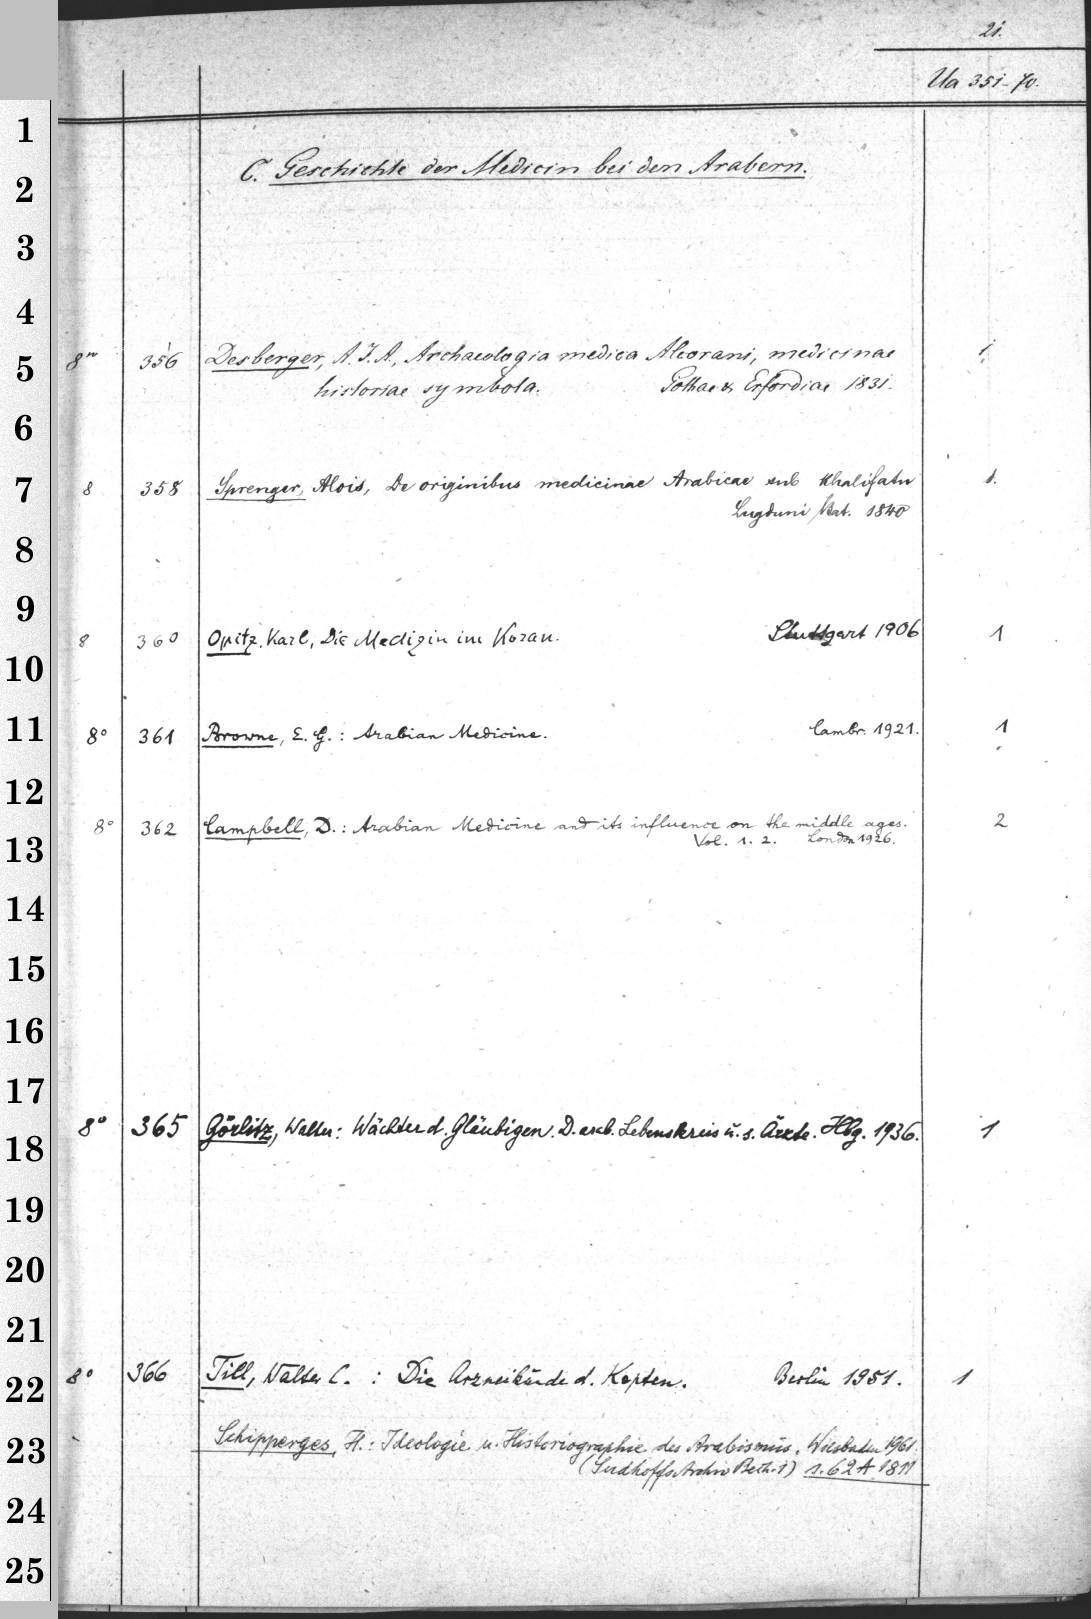 21.
Ua 351-70.
C. Geschichte der Medicin bei den Arabern.
8° 356 Desberger, A. F. A., Archaeologia medica Alcorani, medicinae 1
historiae symbola. Gothae & Erfordiae 1831.
8 358 Sprenger, Alois, De originibus medicinae Arabicae sub Khalifatu 1.
Lugduni Bat. 1840
8 360 Opitz, Karl, Die Medizin im Koran. Stuttgart 1906 1
8° 361 Browne, E. G.: Arabian Medicine. Cambr. 1921. 1
8° 362 Campbell, D.: Arabian Medicine and its influence on the middle ages. 2
Vol. 1. 2. London 1926.
8° 365 Görlitz, Walter: Wächter d. Gläubigen. D. arab. Lebenskreis u. s. Ärzte. Hbg. 1936. 1
8° 366 Till, Walter C. : Die Arzneikunde d. Kopten. Berlin 1951. 1
Schipperges, H.: Ideologie u. Historiographie des Arabismus. Wiesbaden 1961.
(Sudhoffs Archiv Beih. 1) s. 62 A 1811
1
2
3
4
5
6
7
8
9
10
11
12
13
14
15
16
17
18
19
20
21
22
23
24
25